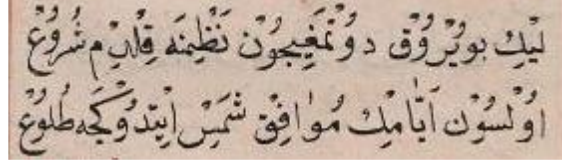 لیك بویروق دوتمغیچون نظمنه قلدم شروع
اولسون ایامك موافق شمس ایتدوكجه طلوع